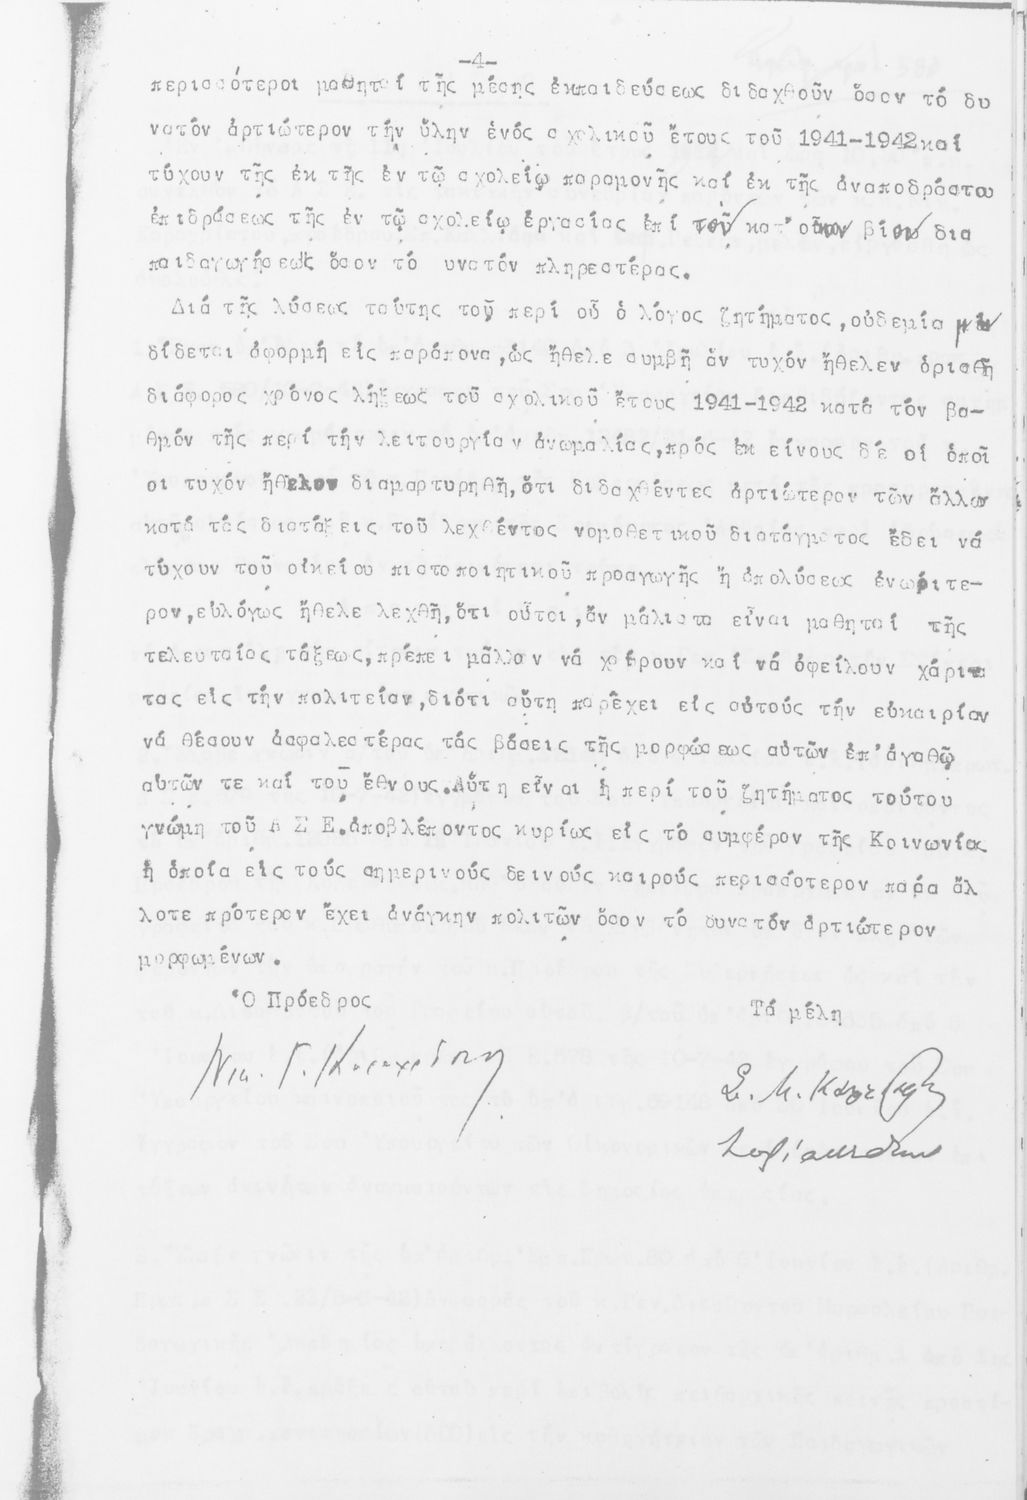 -4-
περισσότεροι μαθηταί τῆς μέσης ἐκπαιδεύσεως διδαχθοῦν ὅσον τό δυ
νατόν ἀρτιώτερον τήν ὕλην ἑνός σχολικοῦ ἔτους τοῦ 1941-1942 καί
τύχουν τῆς ἐκ τῆς ἐν τῷ σχολείῳ παραμονῆς καί ἐκ τῆς ἀναποδράστου
ἐπιδράσεως τῆς ἐν τῷ σχολείῳ ἐργασίας ἐπί τοῦ κατ' οἶκον βίου δια
παιδαγωγήσεως ὅσον τό υνατόν πληρεστέρας.
Διά τῆς λύσεως ταύτης τοῦ περί οὗ ὁ λόγος ζητήματος, οὐδεμία
δίδεται ἀφορμή εἰς παράπονα, ὡς ἤθελε συμβῆ ἄν τυχόν ἤθελεν ὁρισθῆ
διάφορος χρόνος λήξεως τοῦ σχολικοῦ ἔτους 1941-1942 κατά τόν βα-
θμόν τῆς περί τήν λειτουργίαν ἀνωμαλίας, πρός ἐκ είνους δέ οἱ ὁποῖ
οι τυχόν ἤθελον διαμαρτυρηθῆ, ὅτι διδαχθέντες ἀρτιώτερον τῶν ἄλλων
κατά τάς διατάξεις τοῦ λεχθέντος νομοθετικοῦ διατάγματος ἔδει νά
τύχουν τοῦ οἰκείου πιστοποιητικοῦ προαγωγῆς ἤ ἀπολύσεως ἐνωρίτε-
ρον, εὐλόγως ἤθελε λεχθῆ, ὅτι οὗτοι, ἄν μάλιστα εἶναι μαθηταί τῆς
τελευταίας τάξεως, πρέπει μᾶλλον νά χαίρουν καί νά ὀφείλουν χάρι
τας εἰς τήν πολιτείαν, διότι αὕτη παρέχει εἰς αὐτούς τήν εὐκαιρίαν
νά θέσουν ἀσφαλεστέρας τάς βάσεις τῆς μορφώσεως αὐτῶν ἐπ' ἀγαθῷ
αὐτῶν τε καί τοῦ ἔθνους. Αὕτη εἶναι ἡ περί τοῦ ζητήματος τούτου
γνώμη τοῦ Α Σ Ε. ἀποβλέποντος κυρίως εἰς τό συμφέρον τῆς Κοινωνίας
ἡ ὁποία εἰς τούς σημερινούς δεινούς καιρούς περισσότερον παρά ἄλ
λοτε πρότερον ἔχει ἀνάγκην πολιτῶν ὅσον τό δυνατόν ἀρτιώτερον
μορφωμένων.
Ὁ Πρόεδρος
Τά μέλη